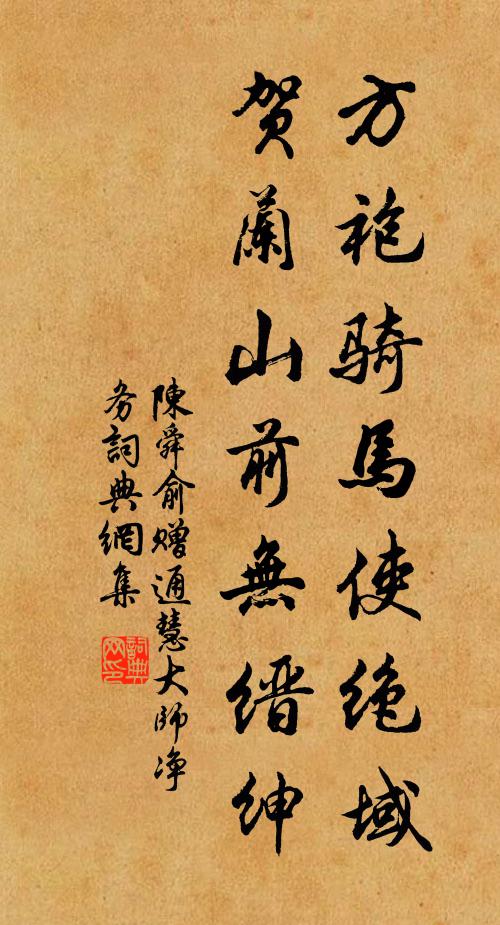 方袍骑馬使绝域
贺蘭山前無缙绅
陳舜俞赠通慧大師净
务詞典網集
詞典网印